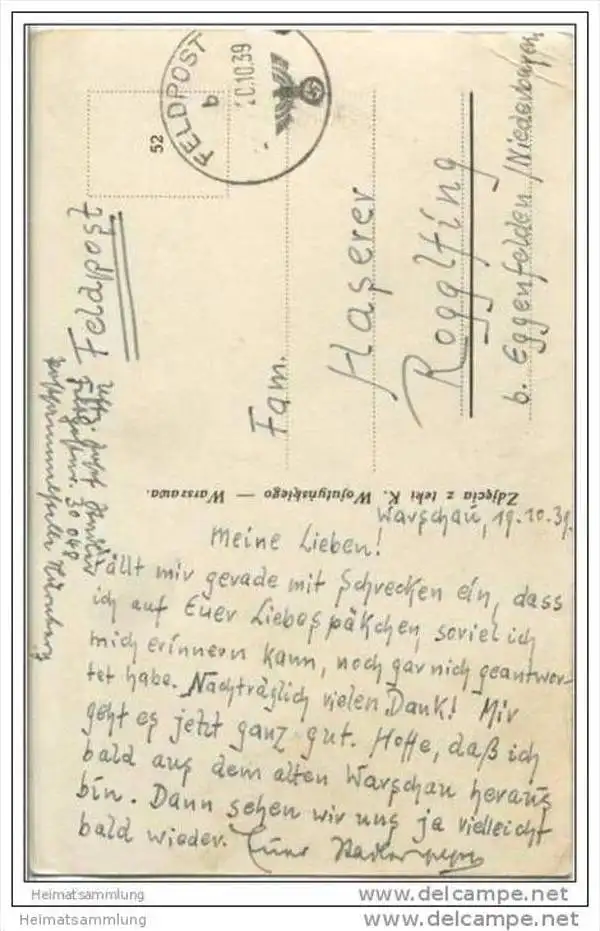 FELDPOST
b
20.10.39
52
Feldpost
Feldpostnr. 30 048
Postsammelstelle Nürnberg
Fam.
Haserer
Rogglfing
b. Eggenfelden /Niederbayern
Zdjęcia z teki K. Wojutyńskiego — Warszawa.
Warschau, 19.10.39.
Meine Lieben!
Fällt mir gerade mit Schrecken ein, dass
ich auf Euer Liebespäkchen, soviel ich
mich erinnern kann, noch gar nich geantwor-
tet habe. Nachträglich vielen Dank! Mir
geht es jetzt ganz gut. Hoffe, daß ich
bald aus dem alten Warschau heraus
bin. Dann sehen wir uns ja vielleicht
bald wieder. Euer
Heimatsammlung
www.delcampe.net
Heimatsammlung
www.delcampe.net